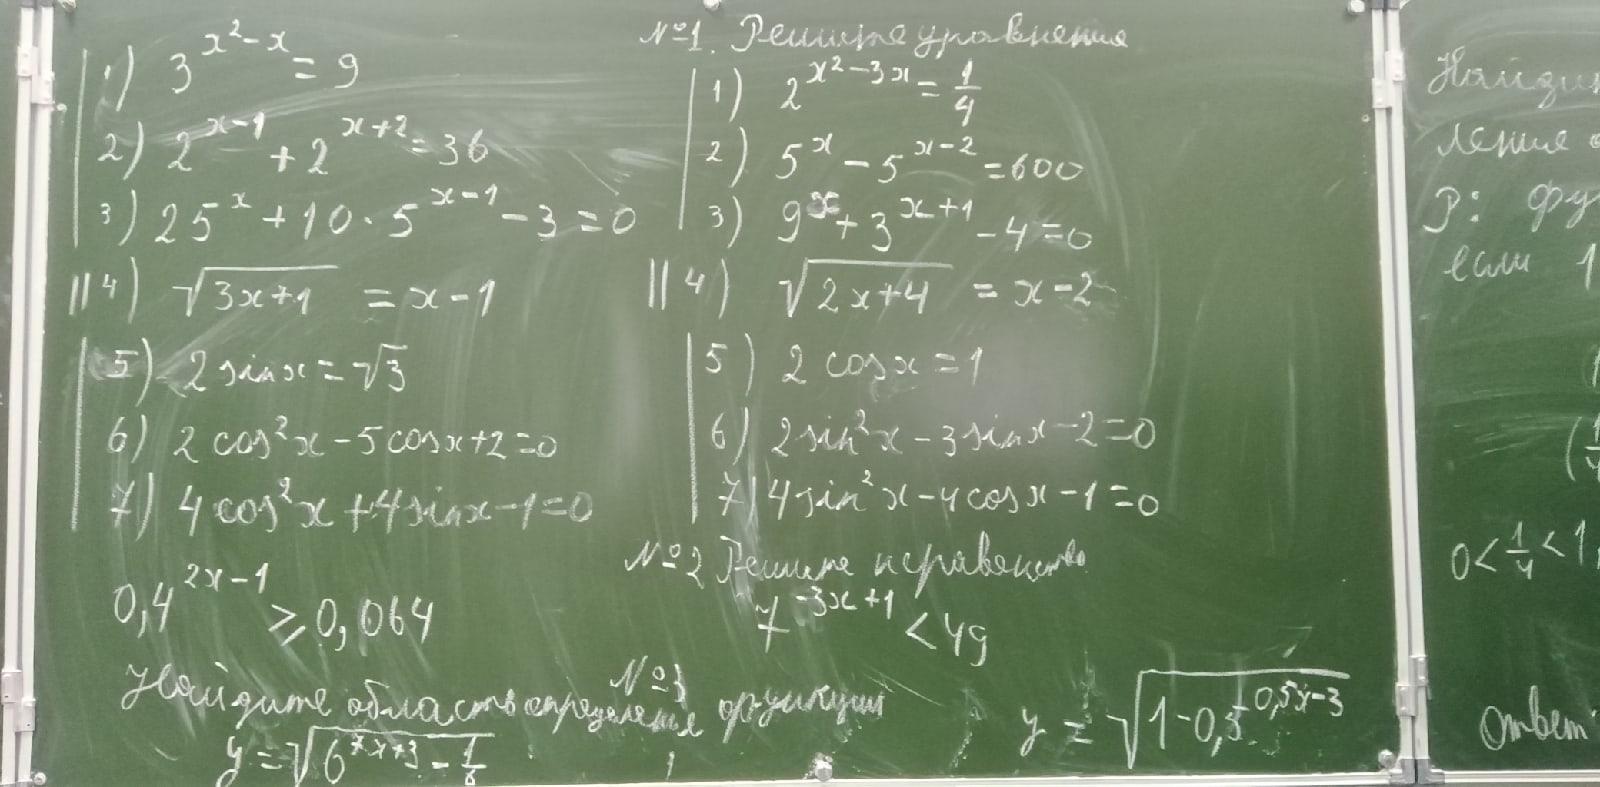 №1. Решите уравнения
1) 3^{x²-x} = 9
2) 2^{x-1} + 2^{x+2} = 36
3) 25^x + 10 · 5^{x-1} - 3 = 0
4) √(3x+1) = x-1
5) 2 sin x = √3
6) 2 cos²x - 5 cos x + 2 = 0
7) 4 cos²x + 4 sin x - 1 = 0
1) 2^{x²-3x} = 1/4
2) 5^x - 5^{x-2} = 600
3) 9^x + 3^{x+1} - 4 = 0
4) √(2x+4) = x-2
5) 2 cos x = 1
6) 2 sin²x - 3 sin x - 2 = 0
7) 4 sin²x - 4 cos x - 1 = 0
№2 Решите неравенство
0,4^{2x-1} ≥ 0,064
7^{-3x+1} < 49
№3
Найдите область определения функции
y = √(6^{7x+3} - 1/6)
y = √(1 - 0,5^{0,5x-3})
если 1
0 < 1/4 < 1
Ответ